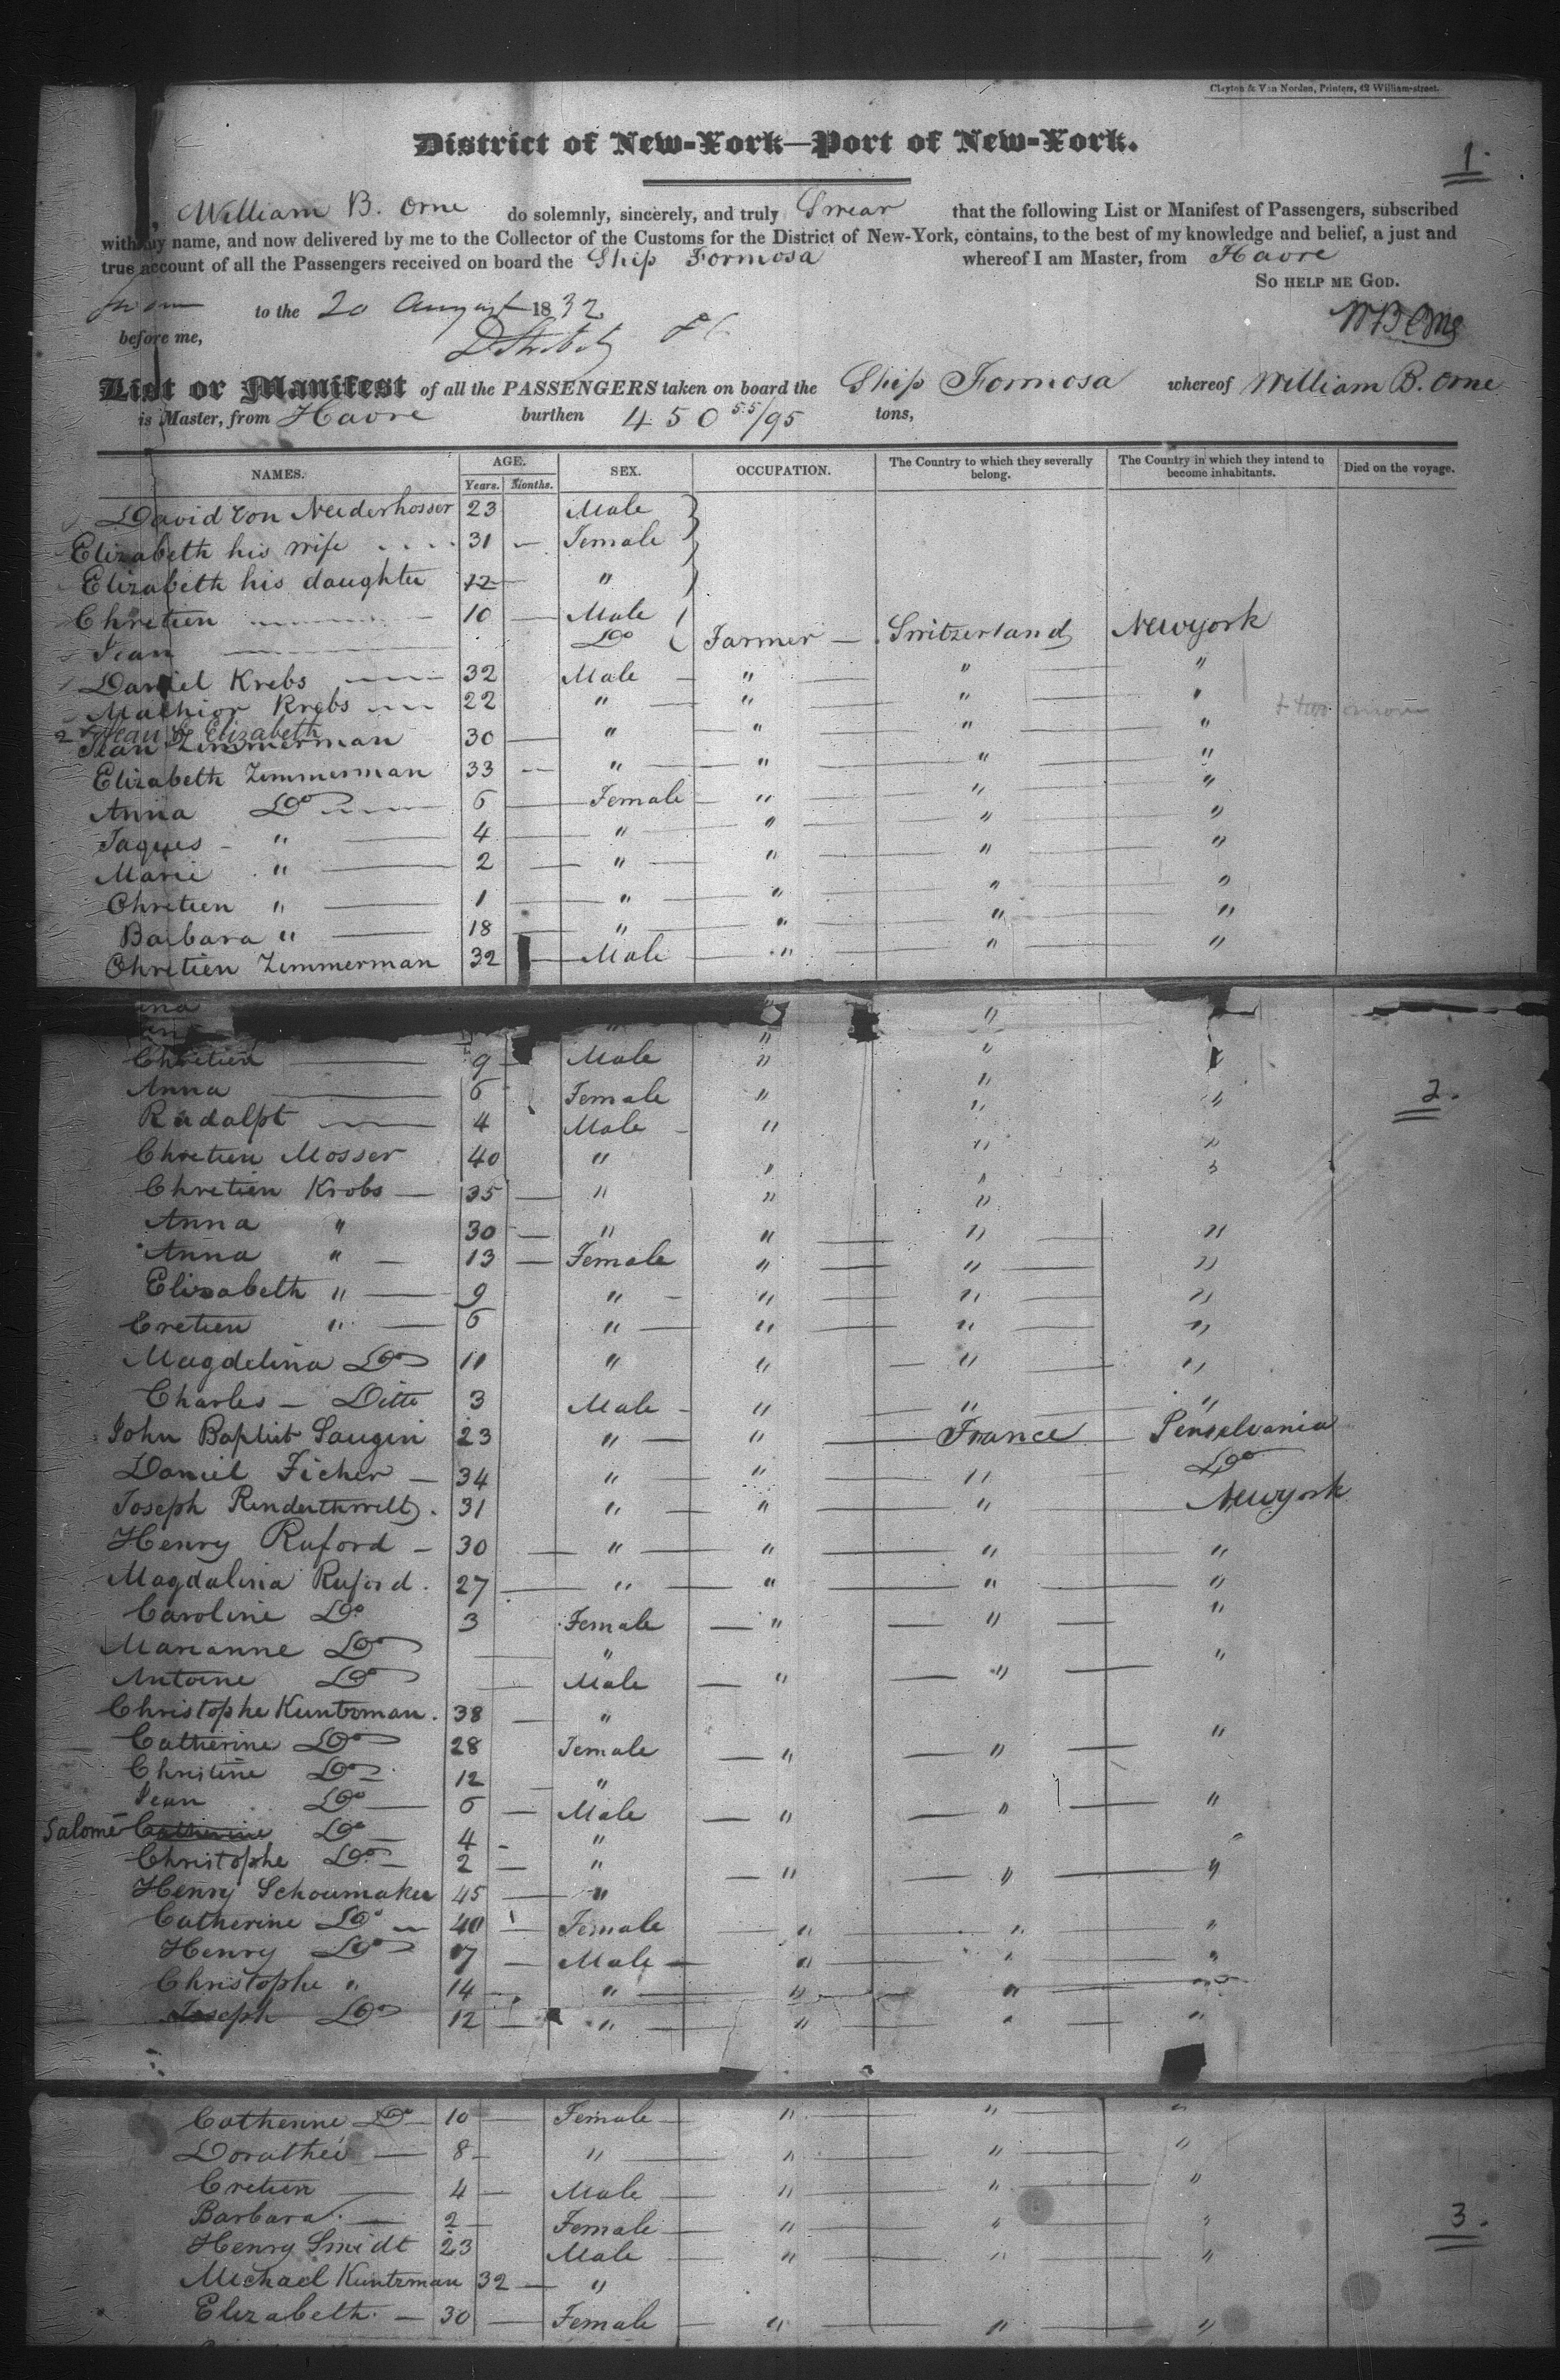 Clayton & Van Norden, Printers, 42 William-street.
District of New-York—Port of New-York.
1.
William B. Orne do solemnly, sincerely, and truly Swear that the following List or Manifest of Passengers, subscribed
with my name, and now delivered by me to the Collector of the Customs for the District of New-York, contains, to the best of my knowledge and belief, a just and
true account of all the Passengers received on board the Ship Formosa whereof I am Master, from Havre
So help me God.
Sworn to the 20 August 1832
before me, WB Orne
List or Manifest of all the PASSENGERS taken on board the Ship Formosa whereof William B. Orne
is Master, from Havre burthen 450 55/95 tons,
NAMES. AGE. SEX. OCCUPATION. The Country to which they severally belong. The Country in which they intend to become inhabitants. Died on the voyage.
Years. Months.
David Von Neederhosser 23 Male
Elizabeth his wife 31 — Female
Elizabeth his daughter 12 — "
Chretien 10 — Male
Jean Do Farmer — Switzerland Newyork
Daniel Krebs 32 Male " " "
Malchior Krebs 22 " " " "
2 Jean & Elizabeth
Jean Zimmerman 30 " " " "
Elizabeth Zimmerman 33 " " " "
Anna Do 6 Female " " "
Jaques " 4 " " " "
Marie " 2 " " " "
Chretien " 1 " " " "
Barbara " 18 " " " "
Chretien Zimmerman 32 Male " " "
" " "
Chretien 9 Male " "
Anna 6 Female " " "
Rudalpt 4 Male " " "
2.
Chretien Mosser 40 " " " "
Chretien Krobs 35 " " "
Anna " 30 " " " "
Anna " 13 Female " " "
Elizabeth " 9 " " " "
Cretien " 6 " " " "
Magdelina Do 11 " " " "
Charles — Ditto 3 Male " " "
John Baptist Saugin 23 " " France Penselvania
Daniel Ficher 34 " " " Do
Joseph Renderthwelly 31 " " " Newyork
Henry Ruford 30 " " " "
Magdalina Ruford 27 " " " "
Caroline Do 3 Female " " "
Marianne Do "
Antoine Do Male " " "
Christophe Kuntzman 38 "
Catherine Do 28 Female " " "
Christine Do 12 "
Jean Do 6 Male " " "
Salome Catherine Do 4 "
Christophe Do 2 " " " "
Henry Schoumaker 45 "
Catherine Do 40 Female " " "
Henry Do 17 Male " " "
Christophe " 14 " " " "
Joseph Do 12 " " " "
Catherine Do 10 Female " " "
Dorathee 8 " " " "
Cretien 4 Male " " "
Barbara 2 Female " " "
3.
Henry Smidt 23 Male " " "
Michael Kuntzman 32 "
Elizabeth 30 Female " " "